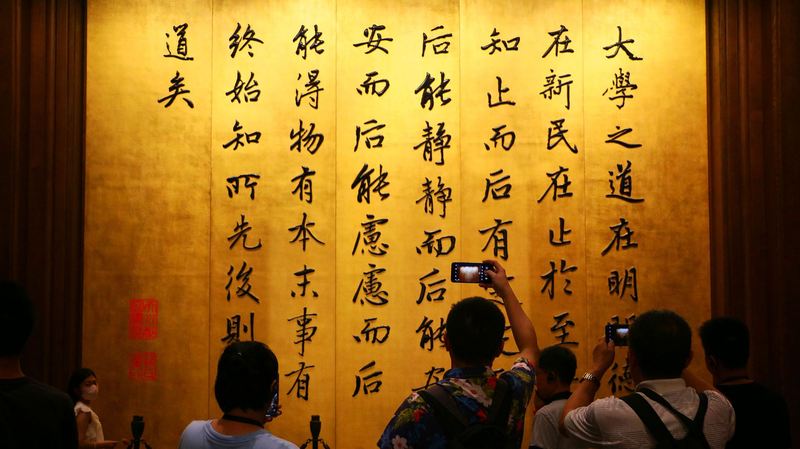 大學之道在明明德
在新民在止於至
知止而后有
后能靜靜而后能安
安而后能慮慮而后
能得物有本末事有
終始知所先後則
道矣